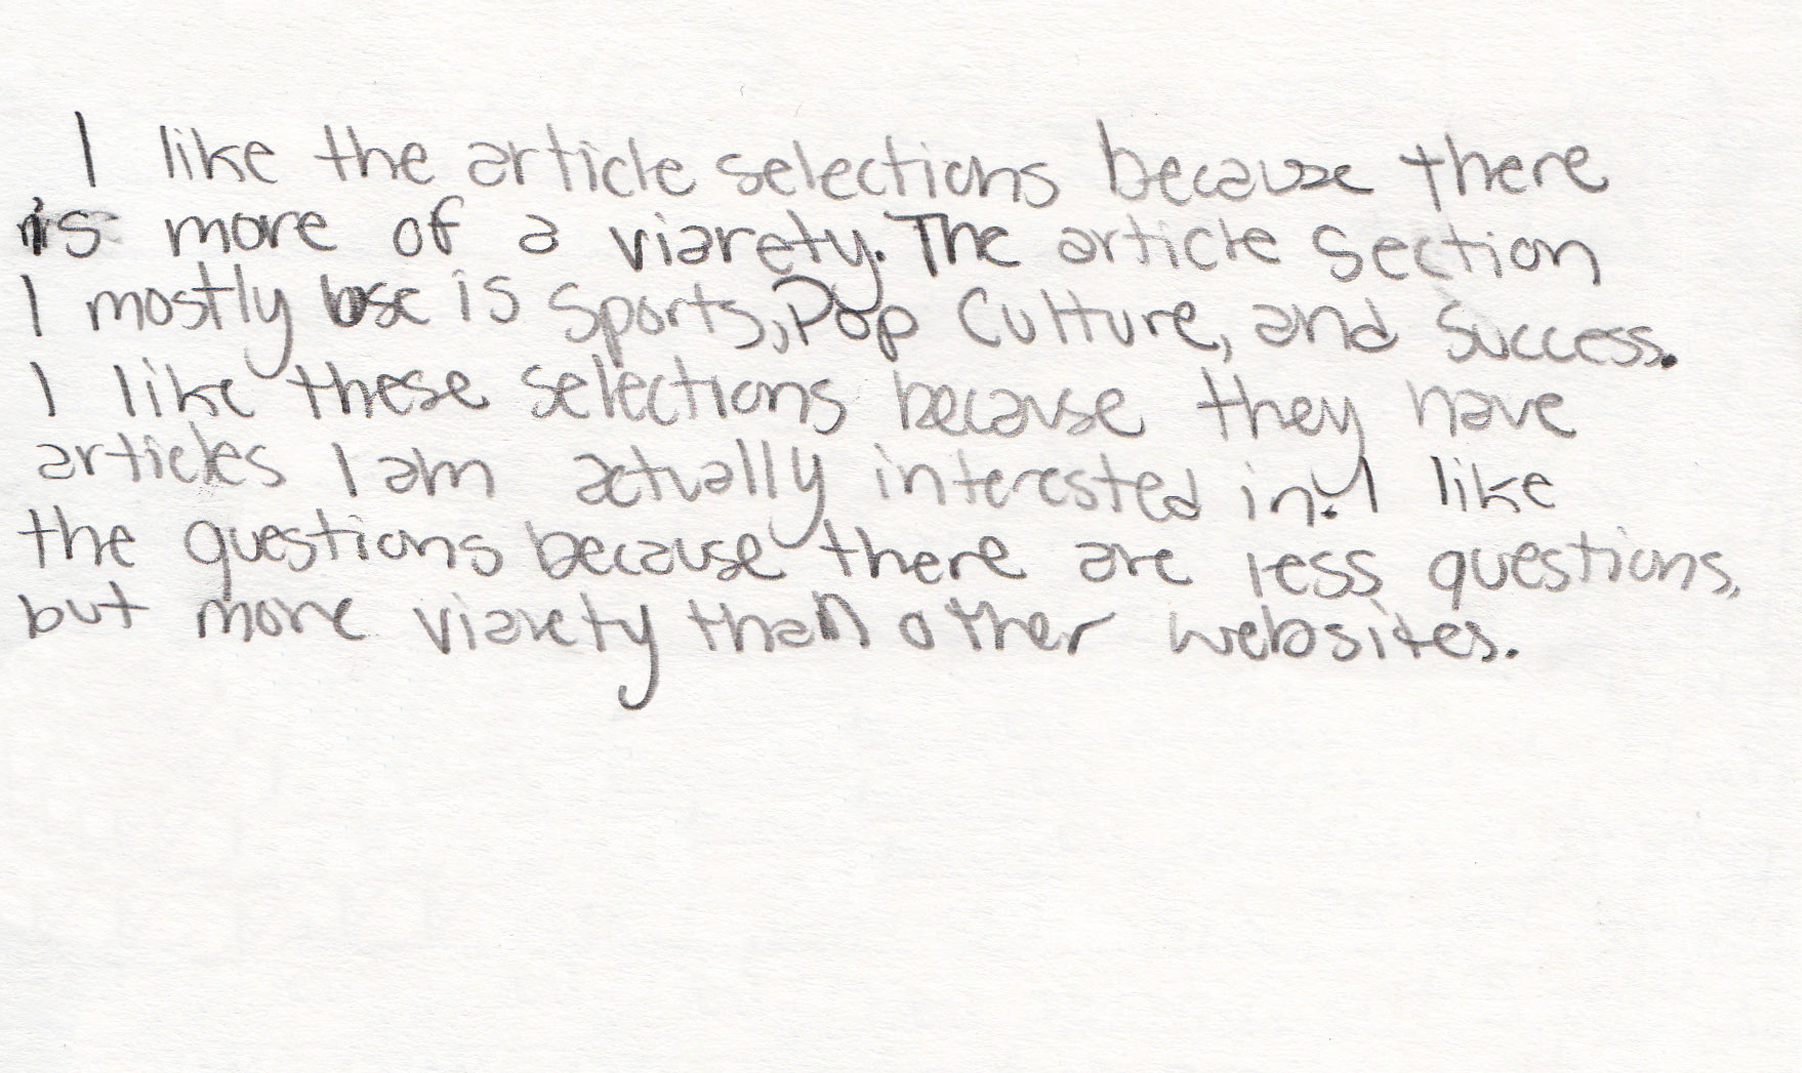 I like the article selections because there
is more of a viarety. The article section
I mostly use is Sports, Pop Culture, and Success.
I like these selections because they have
articles I am actually interested in. I like
the questions because there are less questions,
but more viarety than other websites.